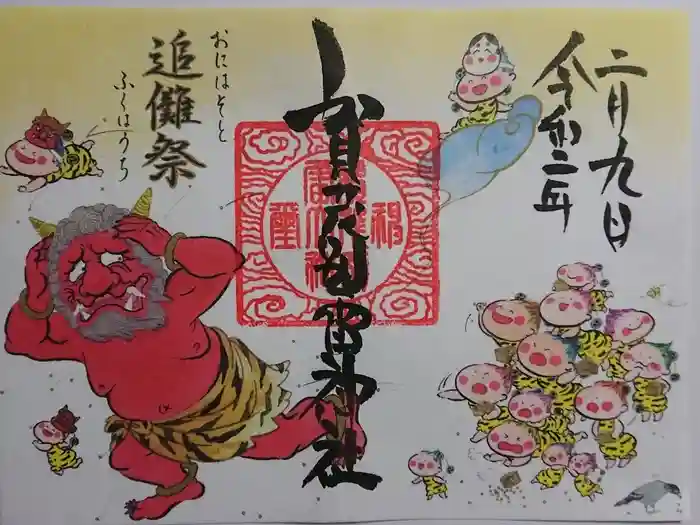 二月九日
令和二年
賀茂別雷神社
おにはそと
追儺祭
ふくはうち